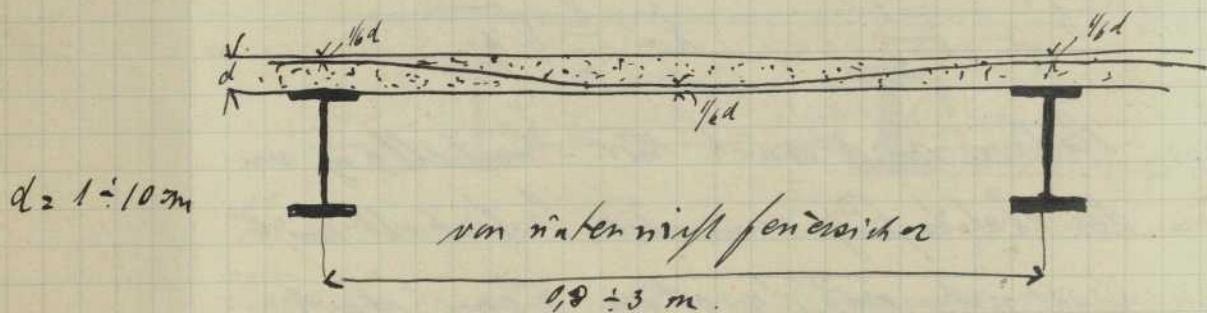 1/6 d
1/6 d
d
1/6 d
d = 1 ÷ 10 cm
von unten nicht feuersicher
0,8 ÷ 3 m.